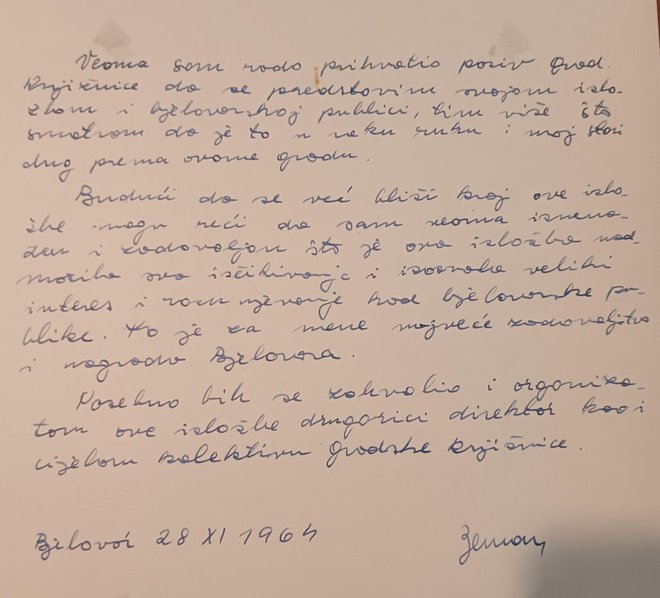 Veoma sam rado prihvatio poziv Grad.
knjižnice da se predstavim svojom izlo-
žbom i bjelovarskoj publici, tim više što
smatram da je to u neku ruku i moj stari
dug prema ovome gradu.
Budući da se već bliži kraj ove izlo-
žbe mogu reći da sam veoma iznena-
đen i zadovoljan što je ova izložba nad-
mašila sva iščekivanja i izazvala veliki
interes i razumjevanje kod bjelovarske pu-
blike. To je za mene najveće zadovoljstvo
i nagrada Bjelovara.
Posebno bih se zahvalio i organiza-
tom ove izložbe drugarici direktor kao i
cijelom kolektivu Gradske knjižnice.
Bjelovar 28 XI 1964
Zeman